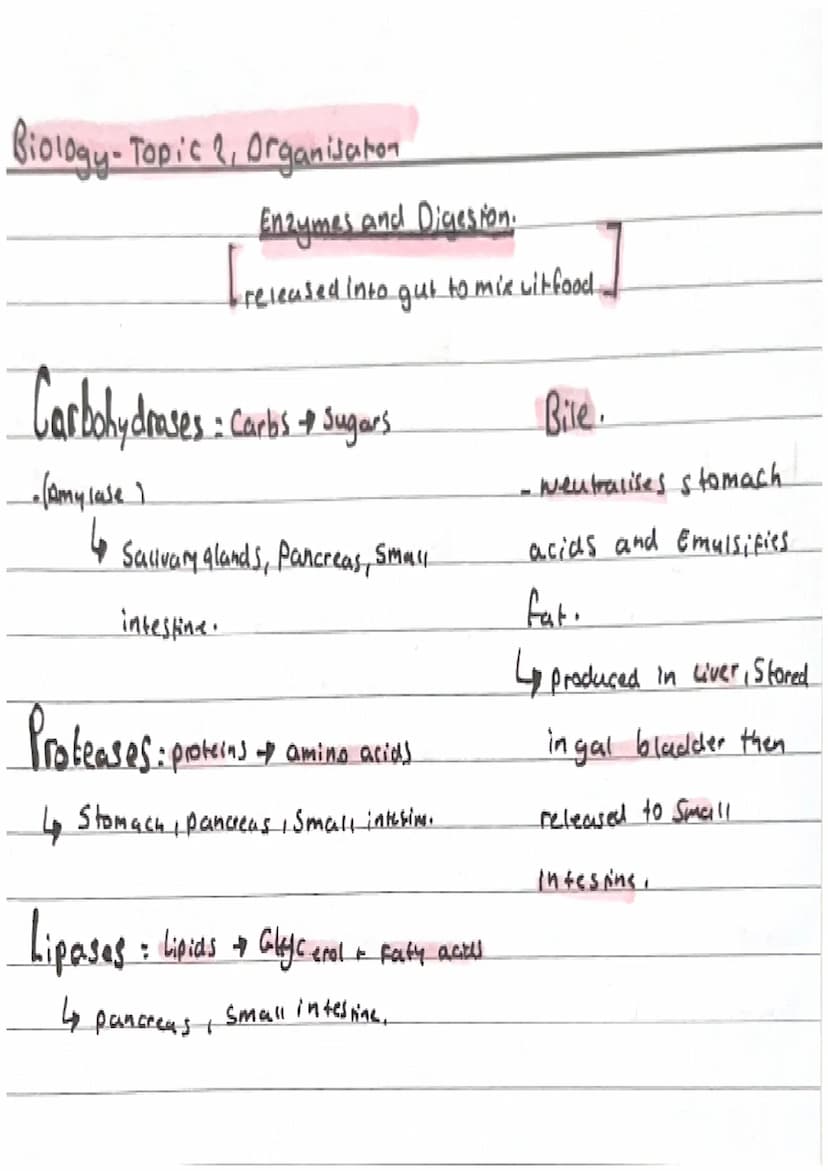 Biology - Topic 2, Organisation
Enzymes and Digestion.
[released into gut to mix wit food]
Carbohydrases : Carbs → Sugars
• (Amylase)
↳ Salivary glands, Pancreas, Small
intestine.
Proteases : proteins → amino acids
↳ Stomach, pancreas, Small intestine.
Lipases : Lipids → Glycerol + Faty acids
↳ pancreas, Small intestine.
Bile.
- Neutralises stomach
acids and Emulsifies
fat.
↳ produced in Liver, Stored
in gal bladder then
released to Small
Intestine.